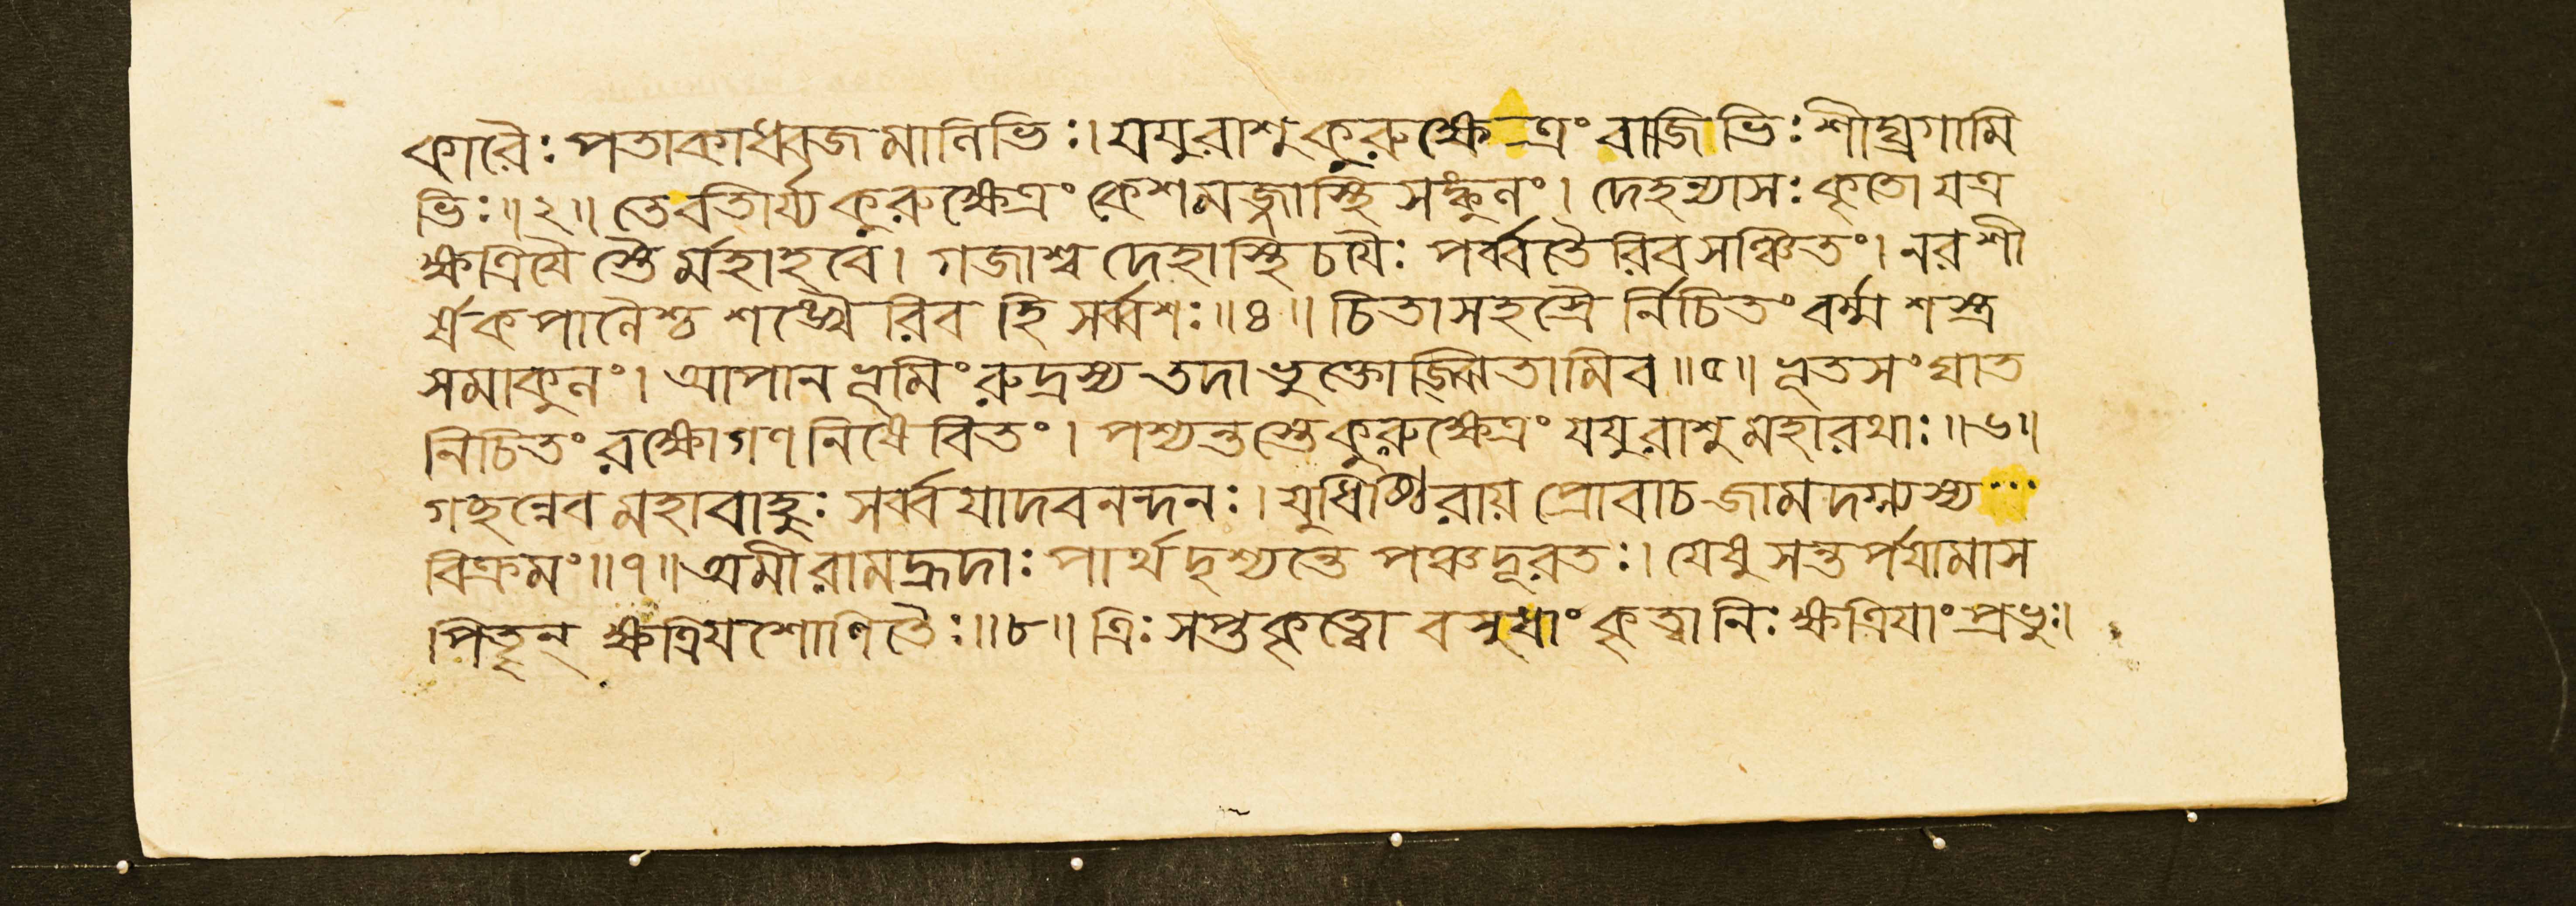 কারৈঃ পতাকাধ্বজমানিভিঃ। যযুরাশু কুরুক্ষেত্রং বাজিভিঃ শীঘ্রগামি
ভিঃ॥২॥ তেবতীর্য্য কুরুক্ষেত্রং কেশমজ্জাস্থিসঙ্কুনং। দেহন্যাসঃ কৃতো যত্র
ক্ষত্রিযৈস্তৈর্মহাহবে। গজাশ্ব দেহাস্থিচযৈঃ পর্ব্বতৈরিবসঞ্চিতং। নরশী
র্ষকপানৈশ্চ শঙ্খৈরিব হি সর্ব্বশঃ॥৪॥ চিতাসহস্রৈর্নিচিতং বর্ম্মশস্ত্র
সমাকুনং। আপানভূমিং রুদ্রস্য তদা ভুক্তোজ্ঝিতামিব॥৫॥ ভূতসংঘাত
নিচিতং রক্ষোগণনিষেবিতং। পশ্যন্তস্তে কুরুক্ষেত্রং যযুরাশু মহারথাঃ॥৬॥
গচ্ছন্নেব মহাবাহুঃ সর্ব্বযাদবনন্দনঃ। যুধিষ্ঠিরায় প্রোবাচ জামদগ্ন্যস্য
বিক্রমং॥৭॥ অমী রামহ্রদাঃ পার্থ দৃশ্যন্তে পঞ্চদূরতঃ। যেষু সন্তর্পযামাস
পিতৄন্ ক্ষত্রিযশোণিতৈঃ॥৮॥ ত্রিঃসপ্তকৃত্বো বসুধাং কৃত্বা নিঃক্ষত্রিযাং প্রভুঃ।